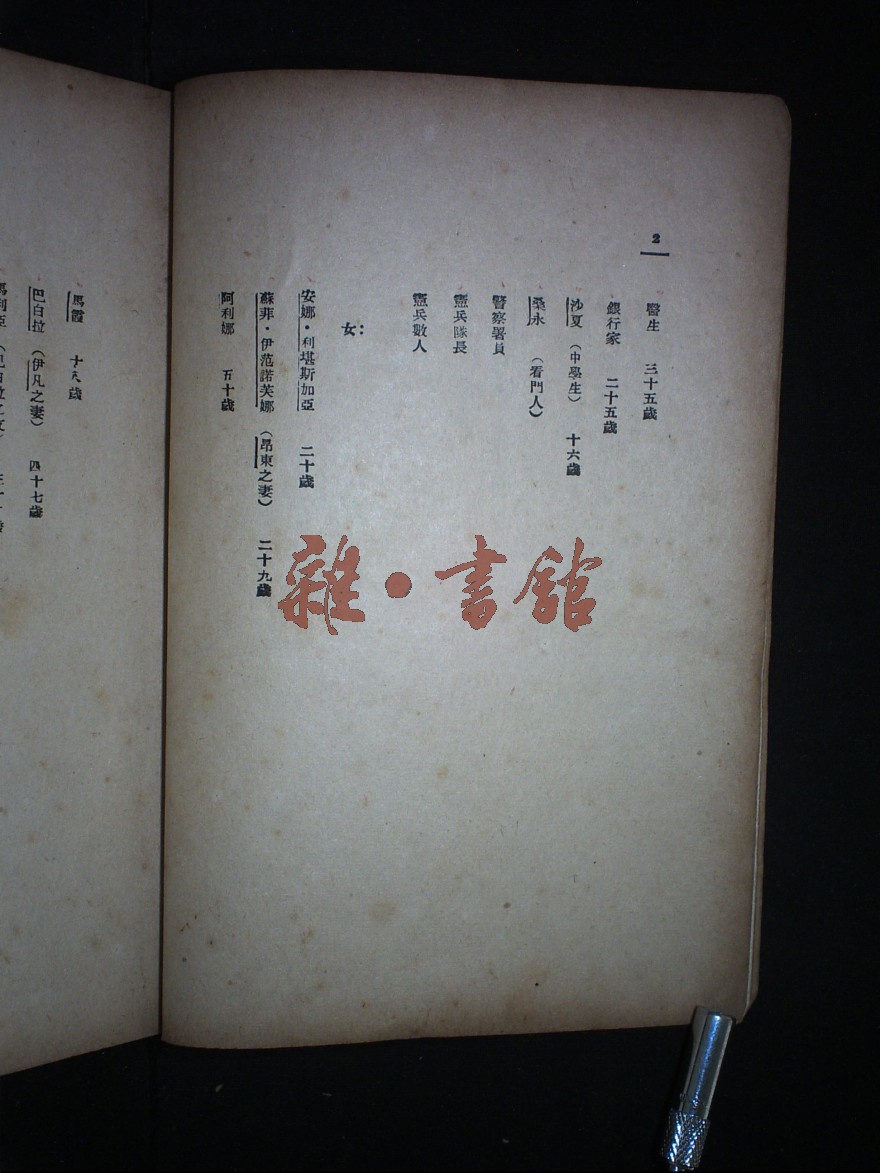 2
醫生　三十五歲
銀行家　二十五歲
沙夏（中學生）　十六歲
桑永　（看門人）
警察署員
憲兵隊長
憲兵數人
女：
安娜・利堪斯加亞　二十歲
蘇菲・伊范諾芙娜（昂東之妻）　二十九歲
阿利娜　五十歲
馬霞　十八歲
巴白拉（伊凡之妻）　四十七歲
雜・書館